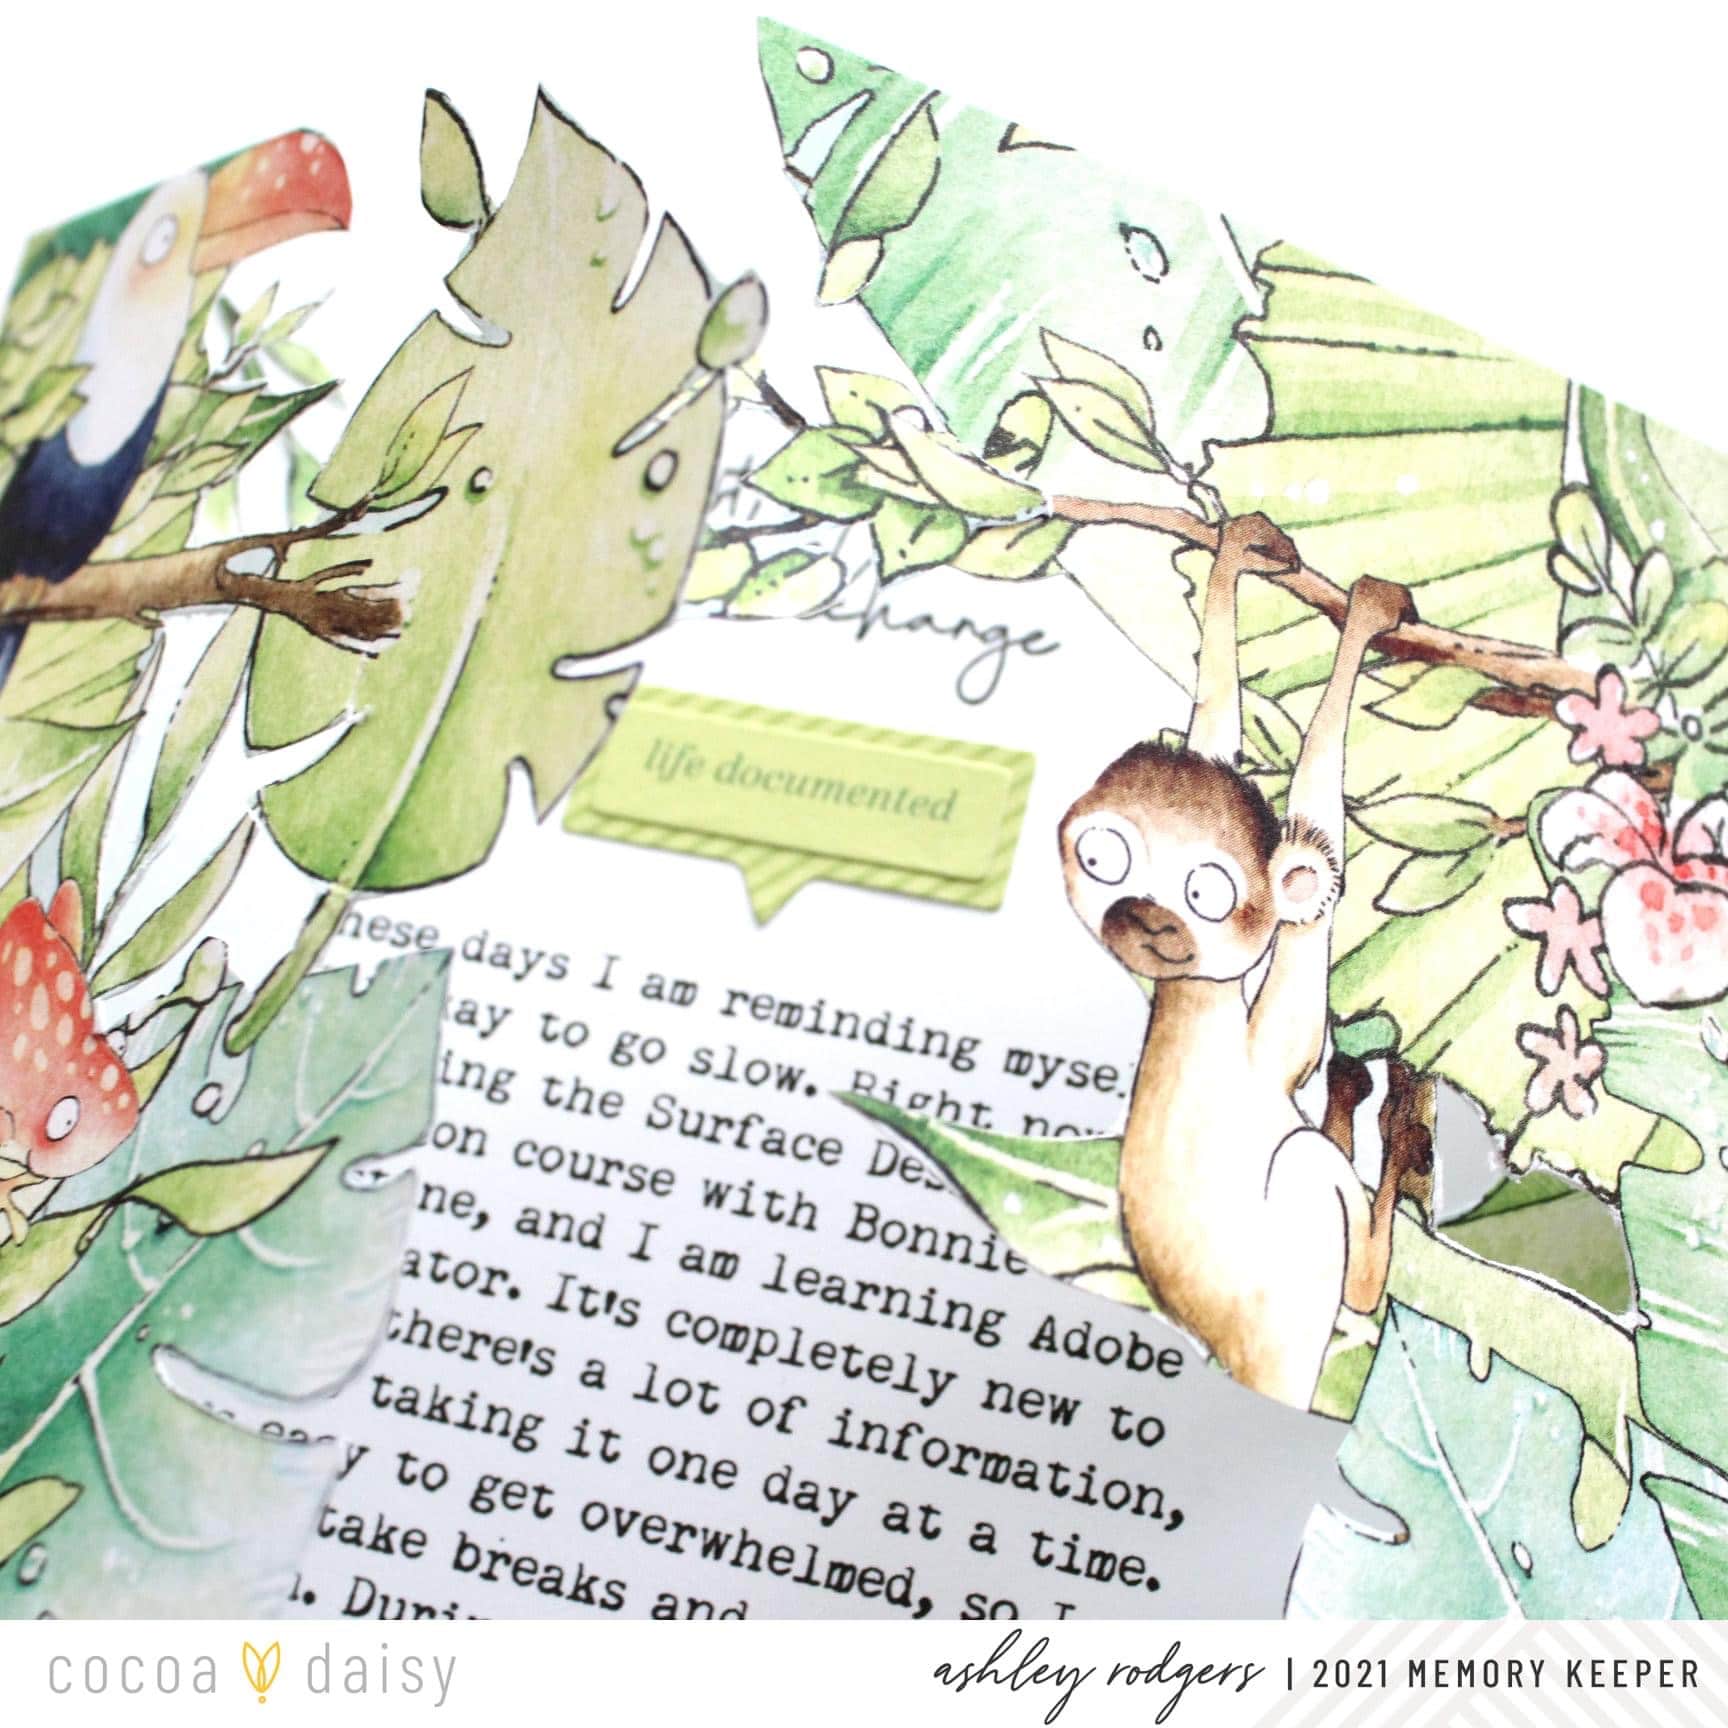 change
life documented
hese days I am reminding mysel
kay to go slow. Right now
ing the Surface Des
on course with Bonnie
ne, and I am learning Adobe
ator. It's completely new to
there's a lot of information,
taking it one day at a time.
easy to get overwhelmed, so I
take breaks and
n. During
cocoa daisy
ashley rodgers | 2021 MEMORY KEEPER